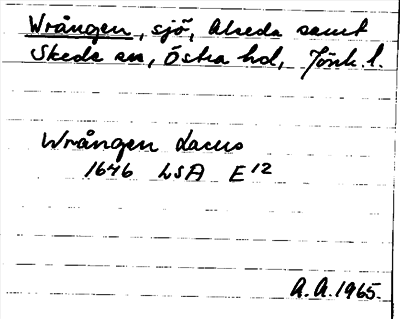 Wrången, sjö, Alseda samt
Skeda sn, Östra hd, Jönk. l.
Wrången Lacus
1646 LSA E12
A. A. 1965.